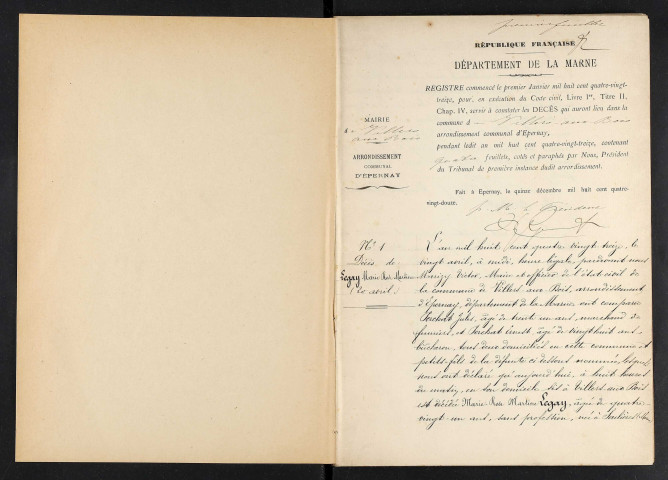 première feuille
RÉPUBLIQUE FRANÇAISE
DÉPARTEMENT DE LA MARNE
REGISTRE commencé le premier Janvier mil huit cent quatre-vingt-
treize, pour, en exécution du Code civil, Livre Ier, Titre II,
Chap. IV, servir à constater les DÉCÈS qui auront lieu dans la
commune d Villers aux Bois
arrondissement communal d'Epernay,
pendant ledit an mil huit cent quatre-vingt-treize, contenant
quatre feuillets, cotés et paraphés par Nous, Président
du Tribunal de première instance dudit arrondissement.
Fait à Epernay, le quinze décembre mil huit cent quatre-
vingt-douze.
MAIRIE
d Villers
aux Bois
ARRONDISSEMENT
COMMUNAL
D'EPERNAY
No 1
Décès de
Legay Marie Rose Martine
(20 avril)
L'an mil huit cent quatre vingt treize, le
vingt avril, à midi, heure légale, pardevant nous
Victor, Maire et officier de l'état civil de
la commune de Villers aux Bois, arrondissement
d'Epernay, département de la Marne ont comparu
Jules, âgé de trente un ans, marchand de
fumiers, et Ernest, âgé de vingt huit ans,
bûcheron, tous deux domiciliés en cette commune et
petits-fils de la défunte ci dessous nommée, lesquels
nous ont déclaré qu'aujourd'hui, à huit heures
du matin, en son domicile sis à Villers aux Bois
est décédée Marie-Rose Martine Legay, âgée de quatre-
vingt un ans, sans profession, née à